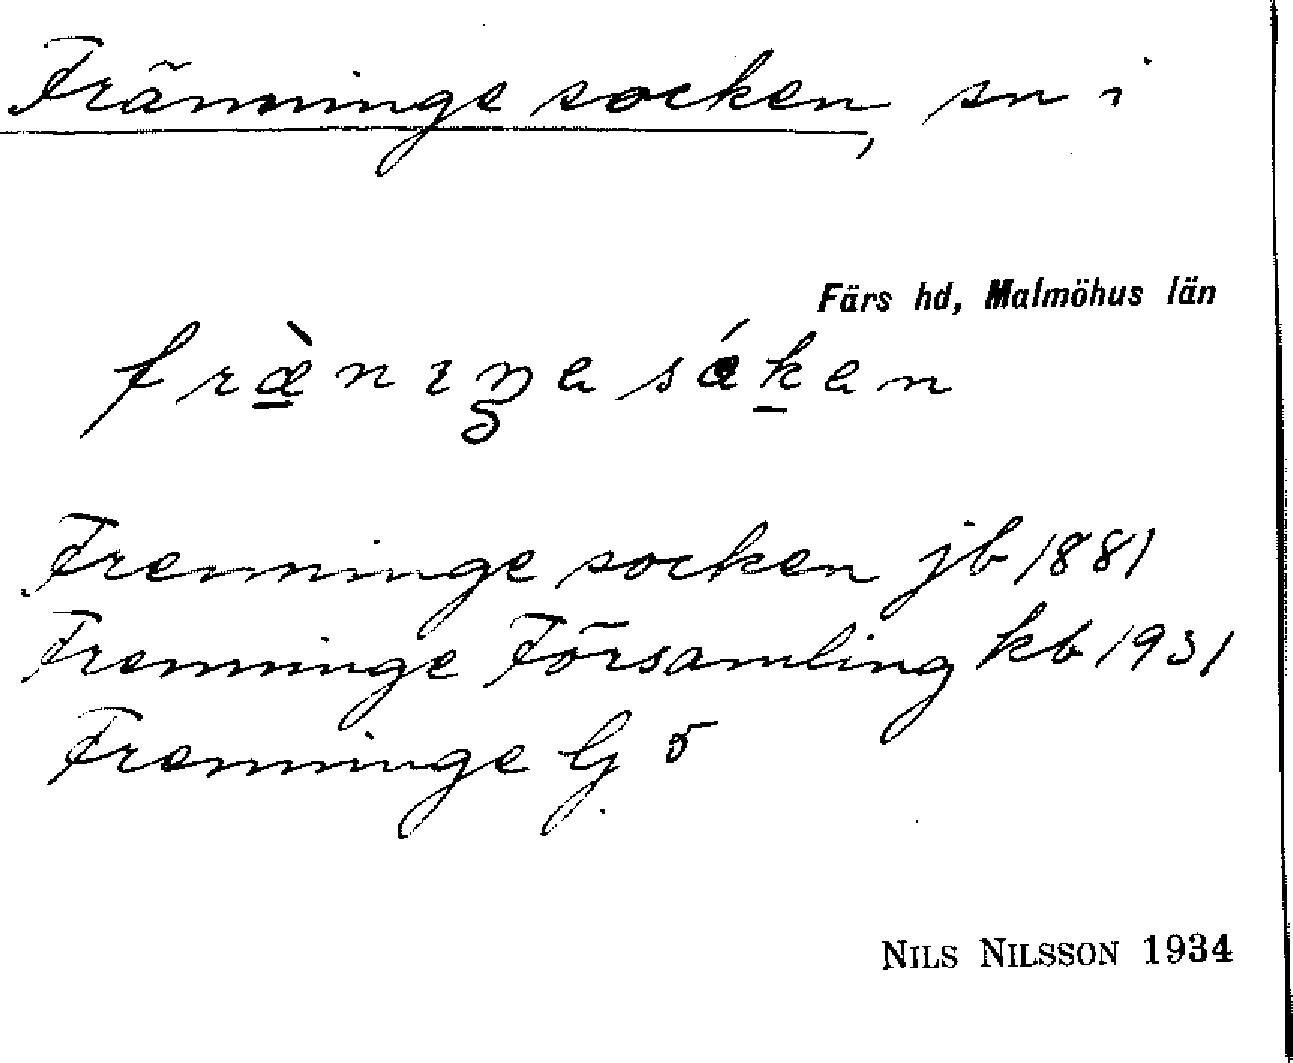 Fränninge socken, sn i
Färs hd, Malmöhus län
fræ̀niŋa såkan
Frenninge socken jb 1881
Frenninge Församling kb 1931
Frenninge G 5
NILS NILSSON 1934